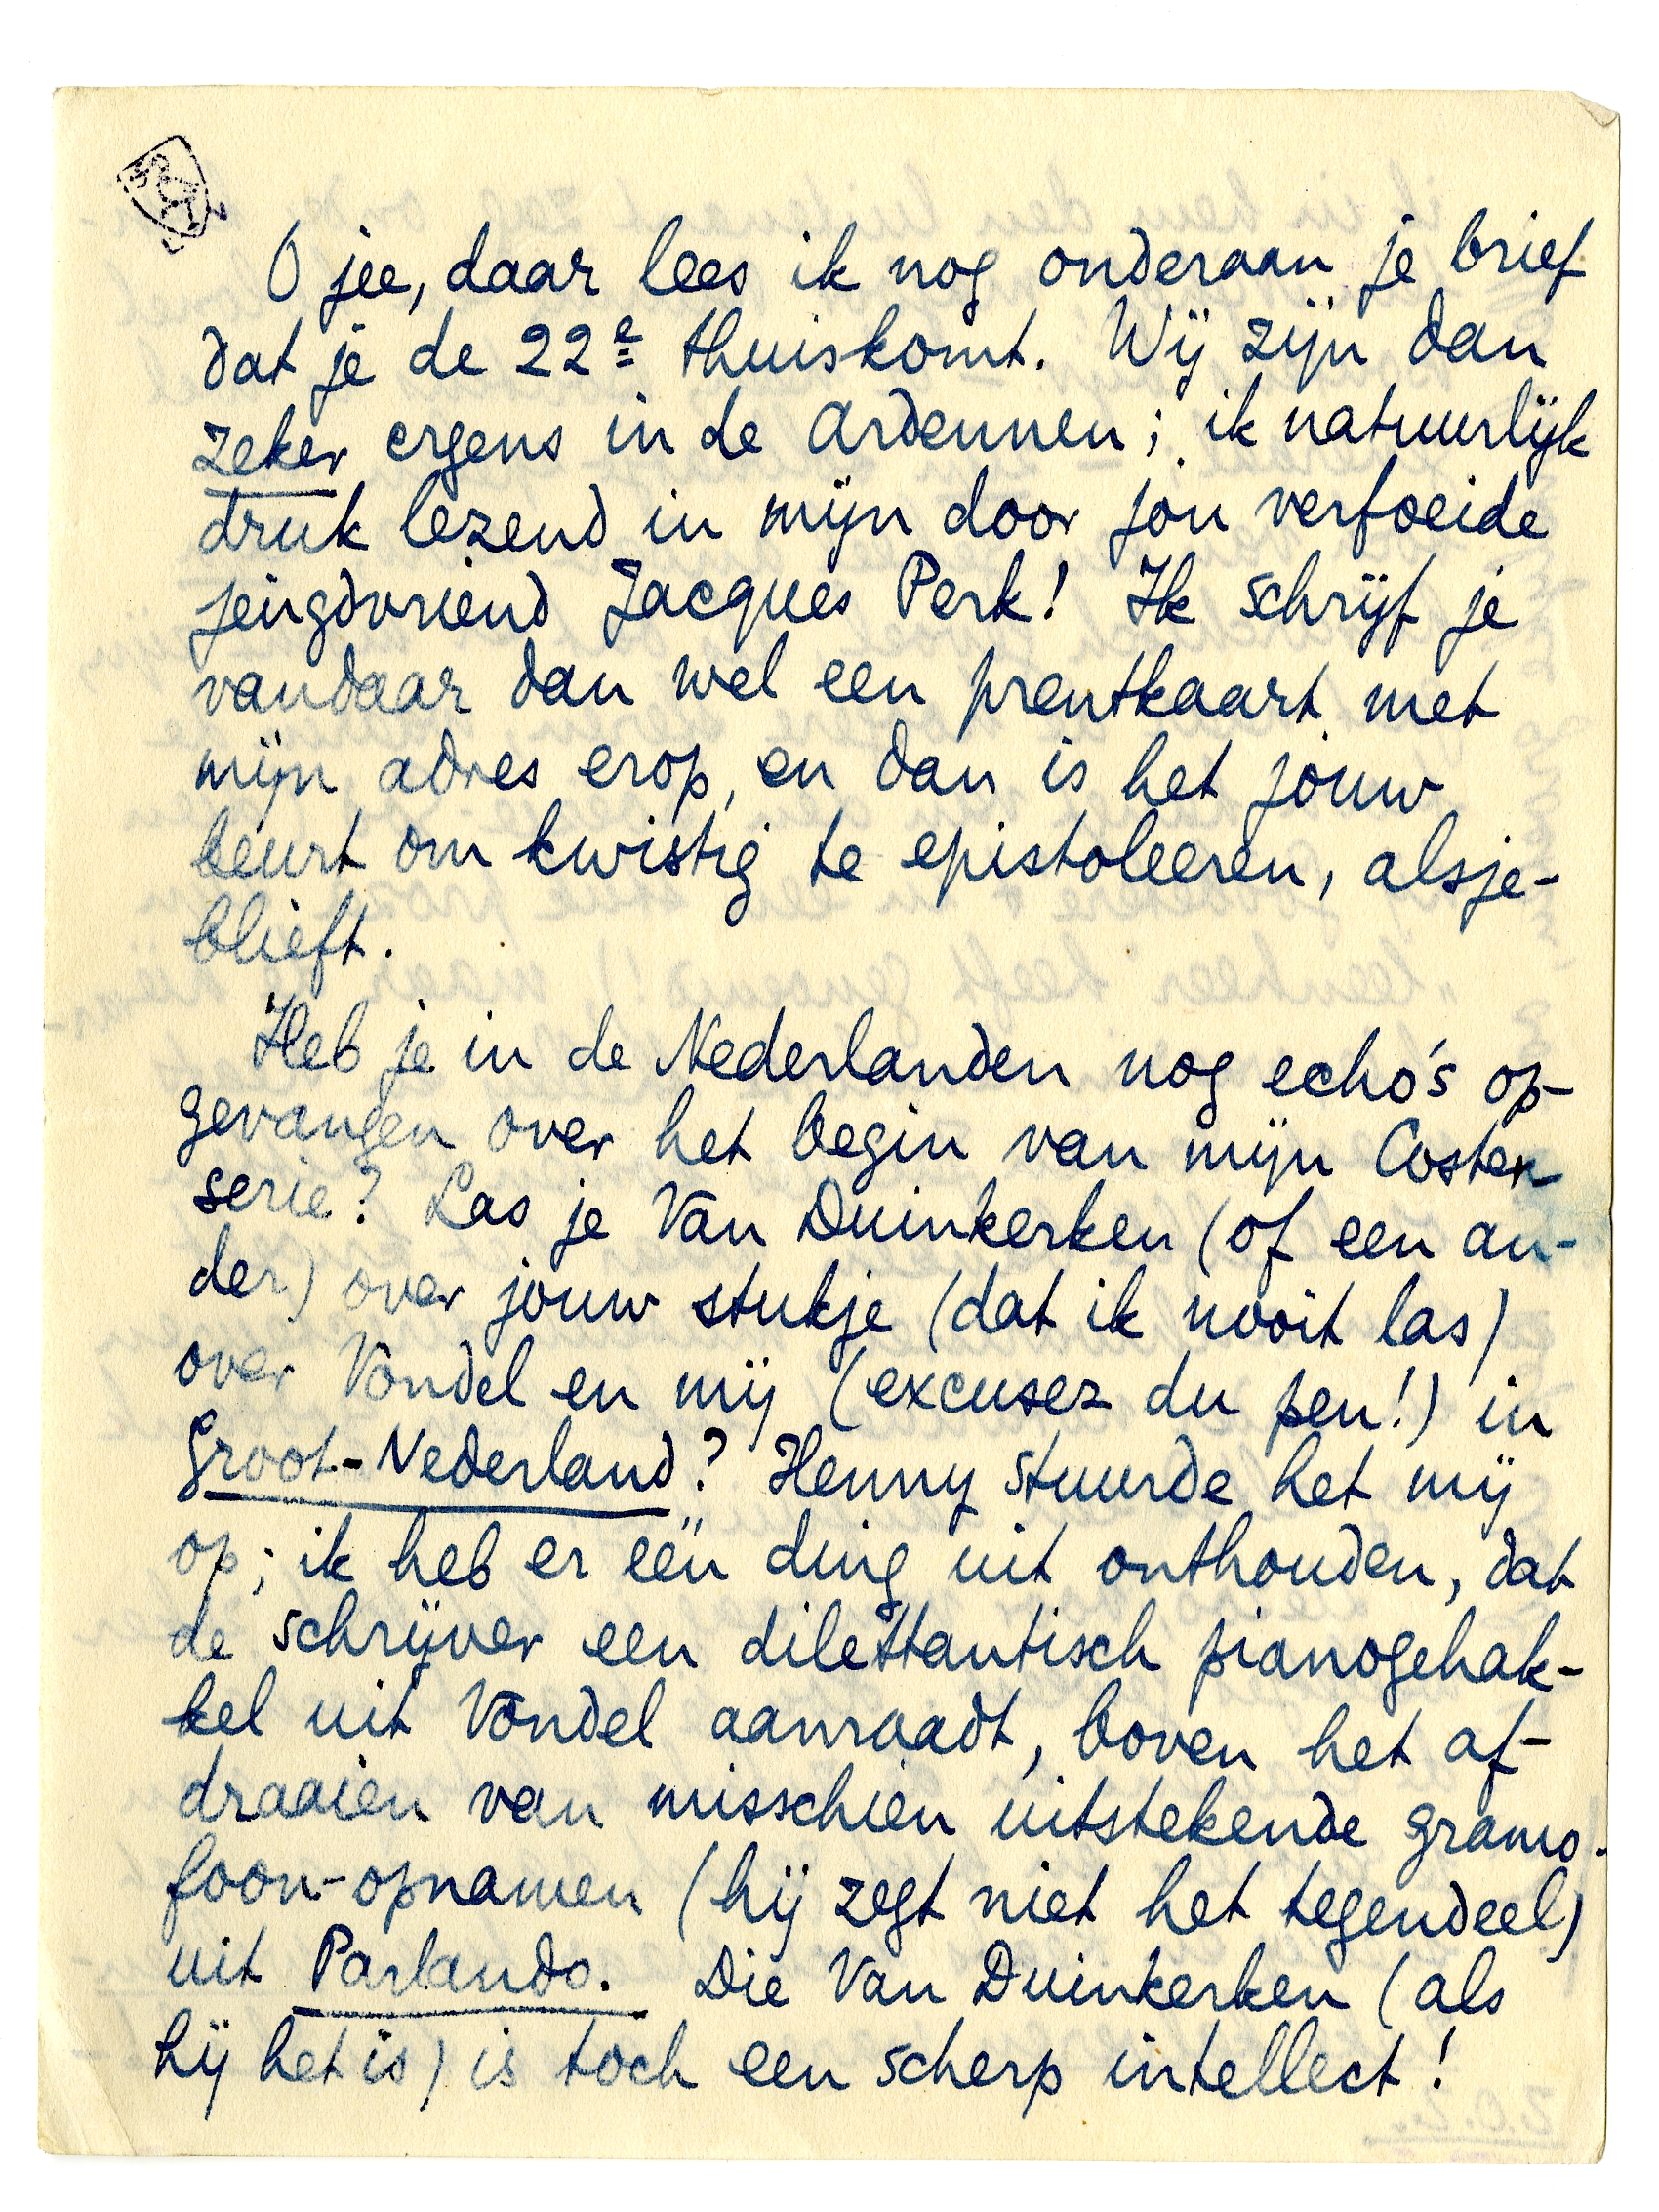 O jee, daar lees ik nog onderaan je brief
dat je de 22e thuiskomt. Wij zijn dan
zeker ergens in de Ardennen; ik natuurlijk
druk lezend in mijn door jou verfoeide
jeugdvriend Jacques Perk! Ik schrijf je
vandaar dan wel een prentkaart met
mijn adres erop, en dan is het jouw
beurt om kwistig te epistoleeren, alsje-
blieft.
Heb je in de Nederlanden nog echo's op-
gevangen over het begin van mijn Coster-
serie? Las je Van Duinkerken (of een an-
der) over jouw stukje (dat ik nooit las)
over Vondel en mij (excusez du peu!) in
Groot-Nederland? Henny stuurde het mij
op; ik heb er één ding uit onthouden, dat
de schrijver een dilettantisch pianogehak-
kel uit Vondel aanraadt, boven het af-
draaien van misschien uitstekende gramo-
foon-opnamen (hij zegt niet het tegendeel)
uit Parlando. Die Van Duinkerken (als
hij het is) is toch een scherp intellect!